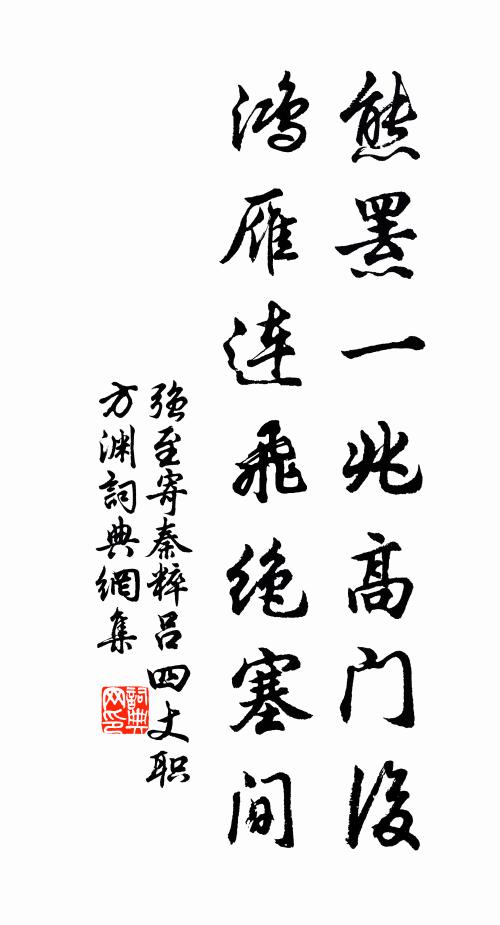 熊罴一兆高门後
鸿雁连飛绝塞间
强至寄秦粹吕四丈职
方渊詞典網集
詞典网印